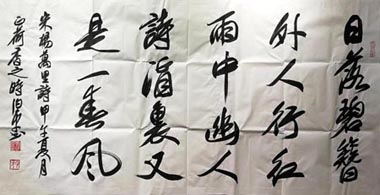 日落碧簪
外人行紅
雨中幽人
詩酒裏又
是一春風
宋楊萬里詩甲午夏月
正荷香之時